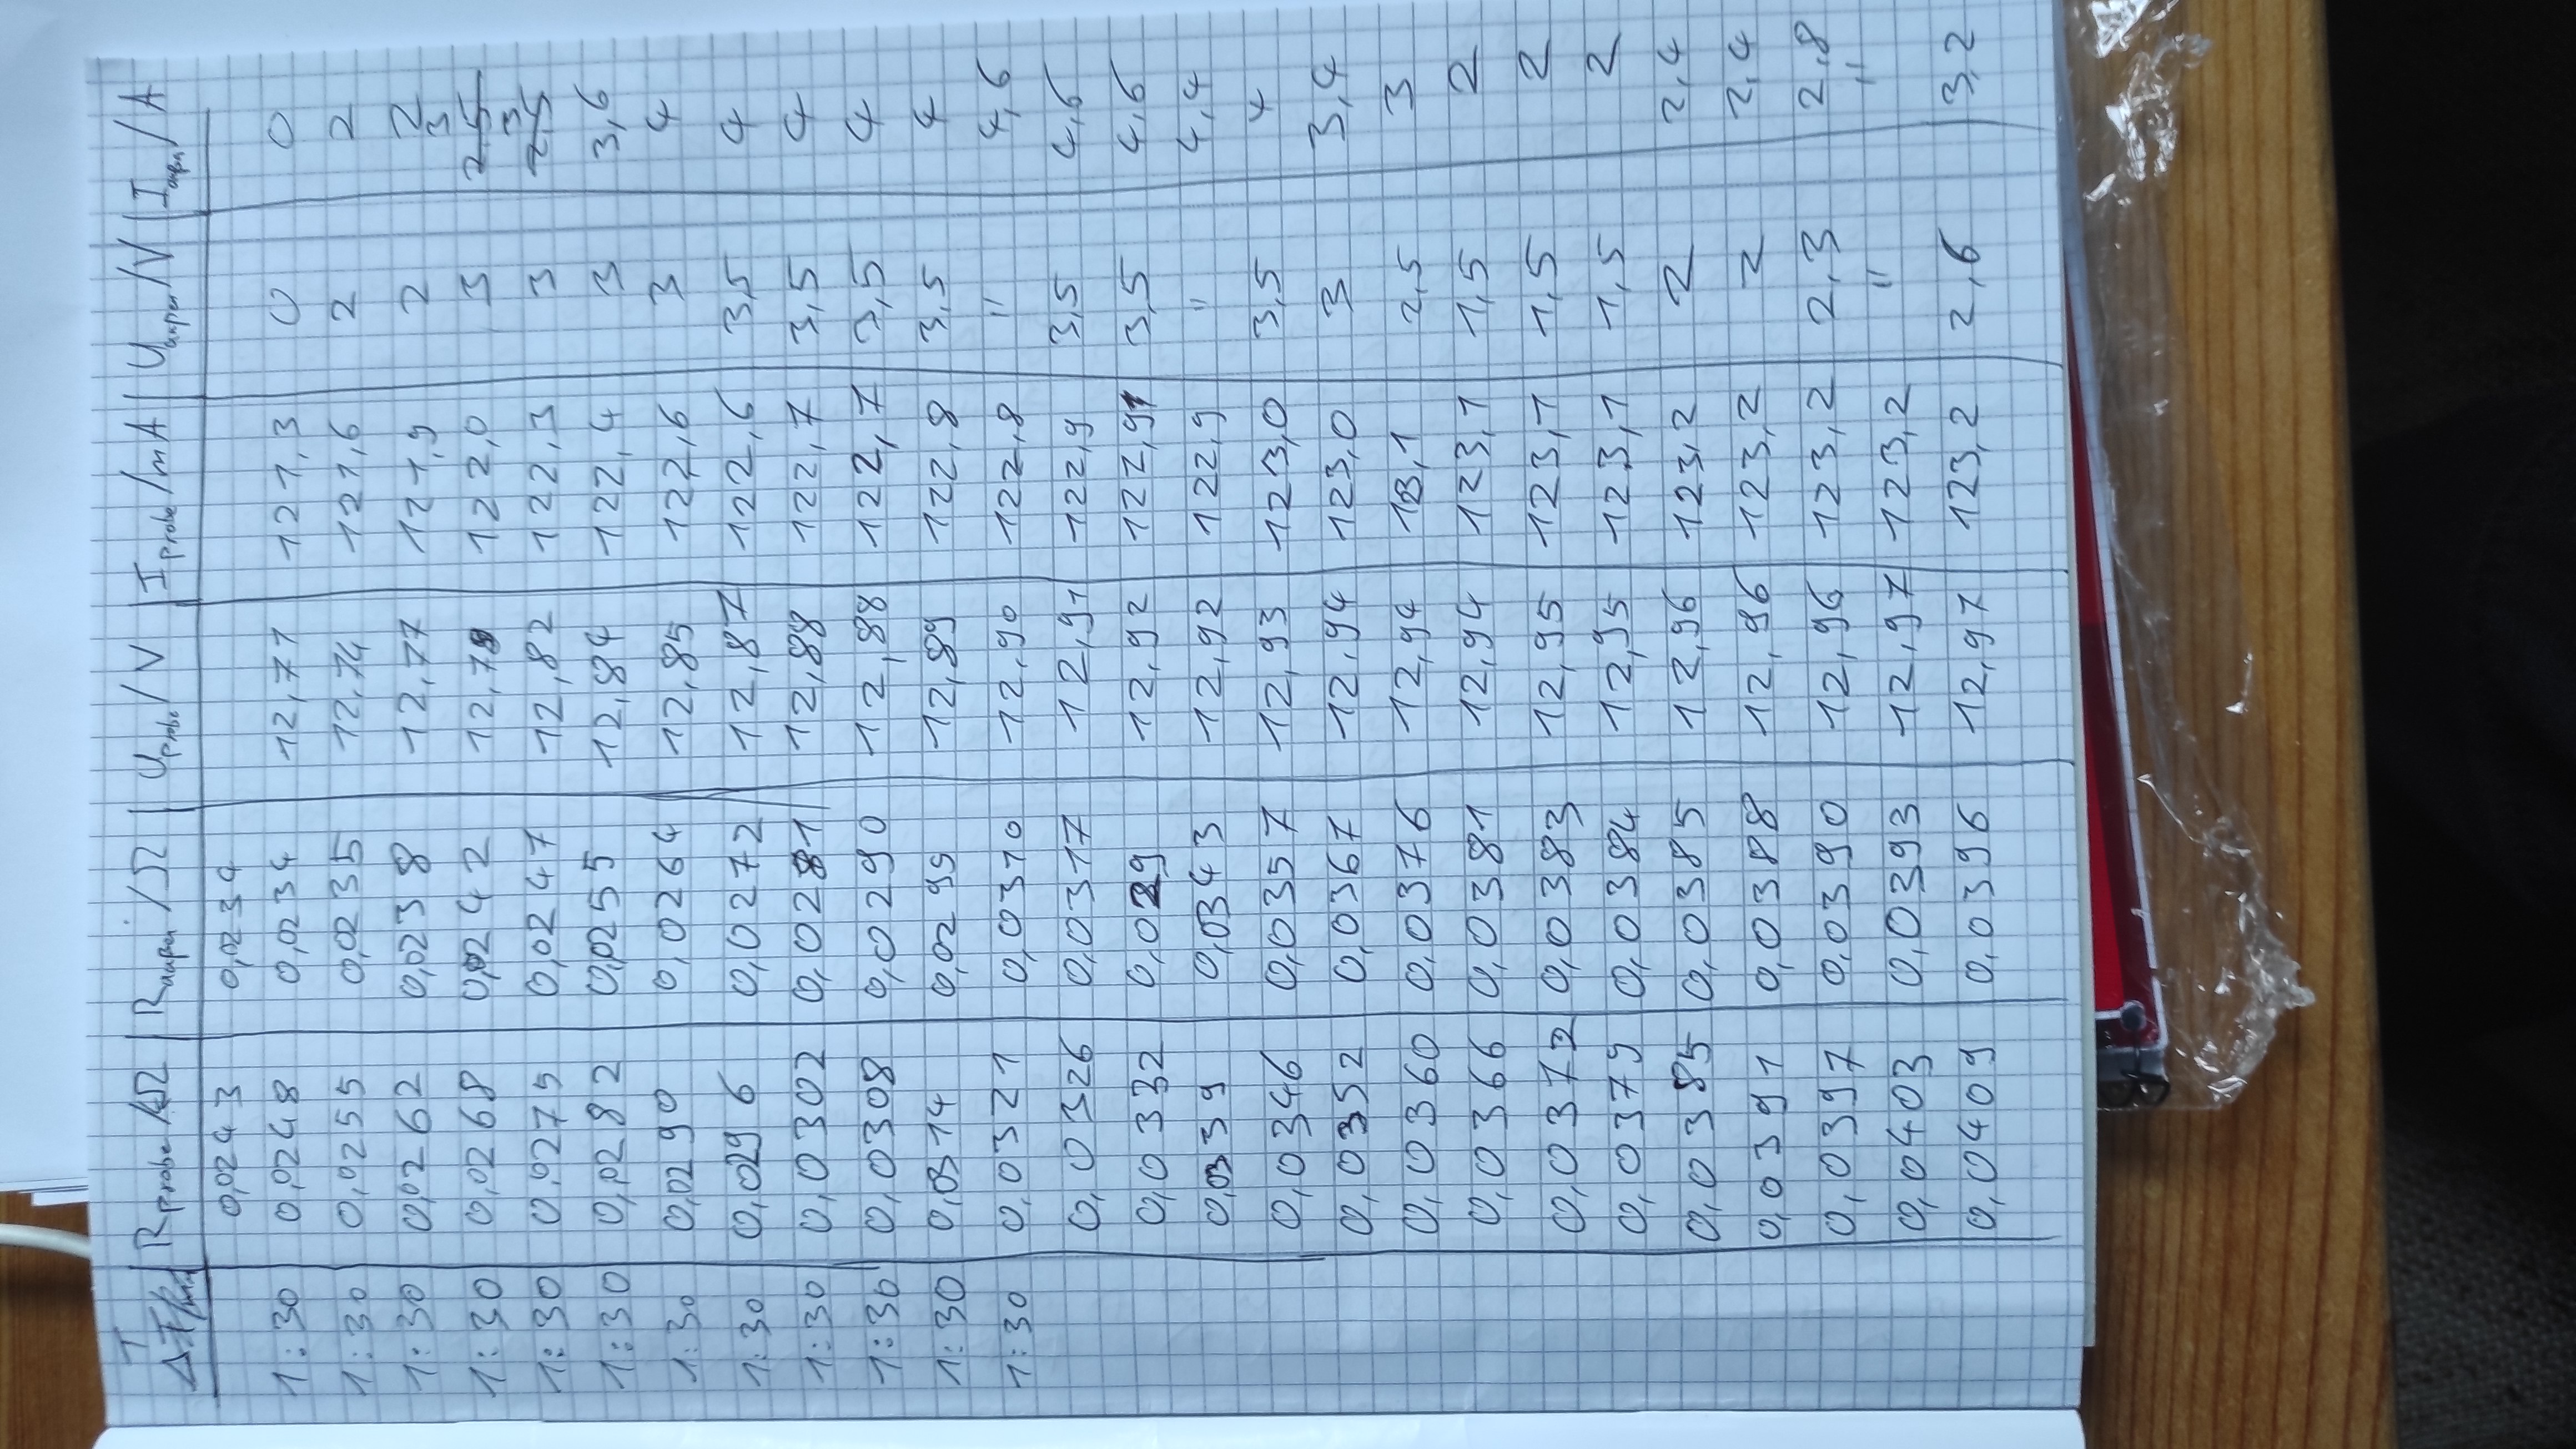 ΔT/min Rprobe/kΩ Raußen/Ω Uprobe/V Iprobe/mA Uaußen/V Iaußen/A
0,0243 0,0234
1:30 0,0248 0,0234 12,71 121,3 0 0
1:30 0,0255 0,0235 12,74 121,6 2 2
1:30 0,0262 0,0238 12,77 121,9 2 2
1:30 0,0268 0,0242 12,79 122,0 3 2,5 3
1:30 0,0275 0,0247 12,82 122,3 3 2,5 3
1:30 0,0282 0,0255 12,84 122,4 3 3,6
1:30 0,0290 0,0264 12,85 122,6 3 4
1:30 0,0296 0,0272 12,87 122,6 3,5 4
1:30 0,0302 0,0281 12,88 122,7 3,5 4
1:30 0,0308 0,0290 12,88 122,7 3,5 4
1:30 0,0314 0,0299 12,89 122,8 3,5 4
1:30 0,0321 0,0310 12,90 122,8 " 4,6
0,0326 0,0317 12,91 122,9 3,5 4,6
0,0332 0,029 12,92 122,9 3,5 4,6
0,0339 0,0343 12,92 122,9 " 4,4
0,0346 0,0357 12,93 123,0 3,5 4
0,0352 0,0367 12,94 123,0 3 3,4
0,0360 0,0376 12,94 123,1 2,5 3
0,0366 0,0381 12,94 123,1 1,5 2
0,0372 0,0383 12,95 123,1 1,5 2
0,0379 0,0384 12,95 123,1 1,5 2
0,0385 0,0385 12,96 123,2 2 2,4
0,0391 0,0388 12,96 123,2 2 2,4
0,0397 0,0390 12,96 123,2 2,3 2,8
0,0403 0,0393 12,97 123,2 " "
0,0409 0,0396 12,97 123,2 2,6 3,2